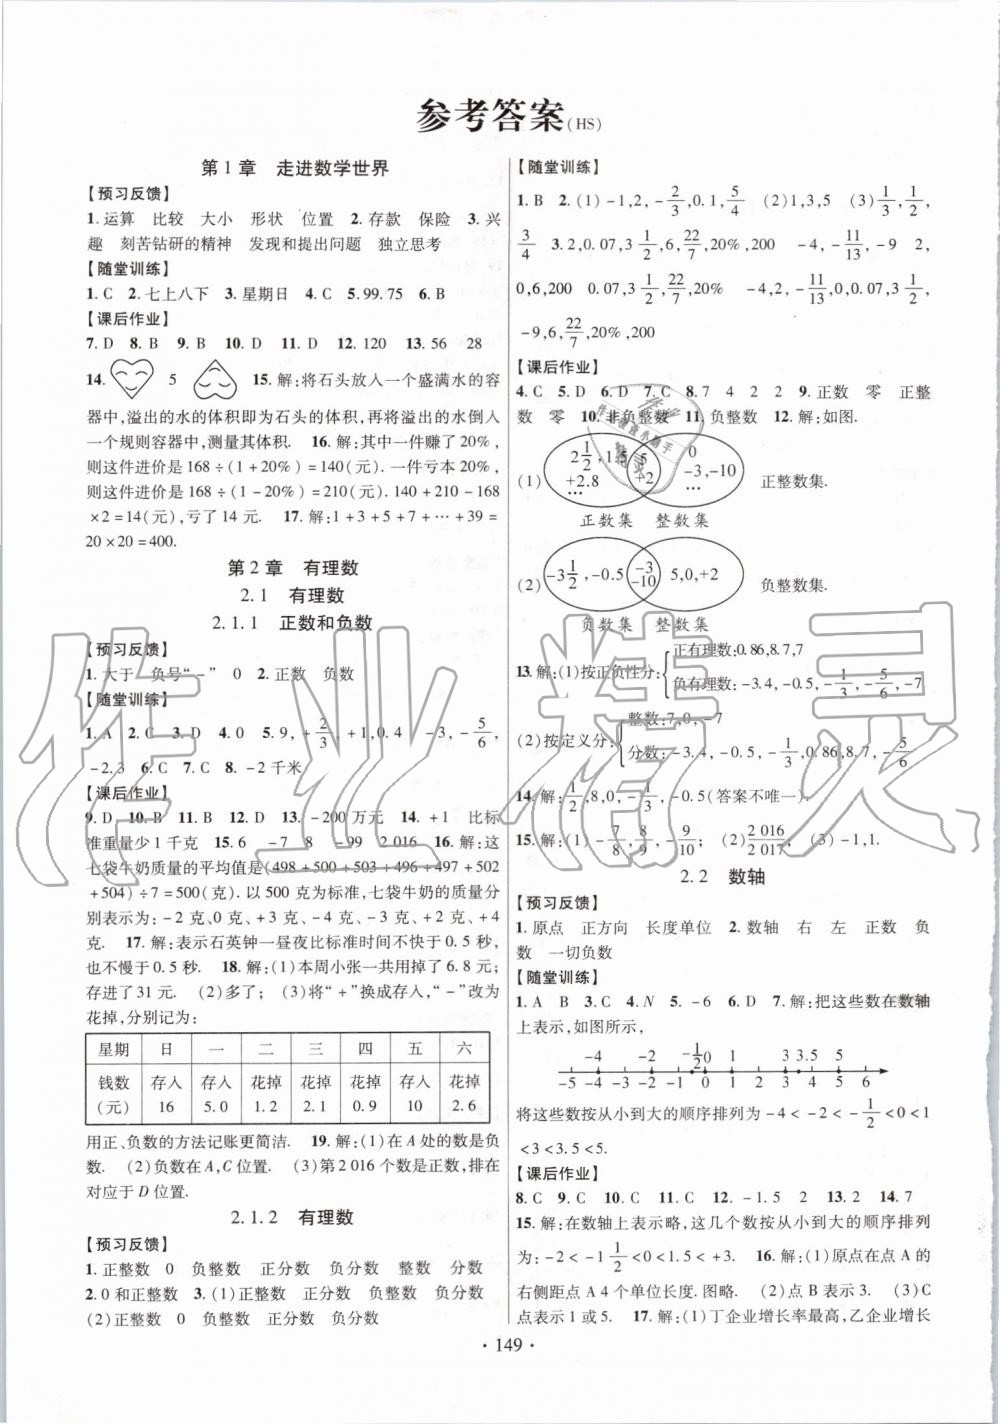 参考答案(HS)
第1章 走进数学世界
【预习反馈】
1.运算 比较 大小 形状 位置 2.存款 保险 3.兴
趣 刻苦钻研的精神 发现和提出问题 独立思考
【随堂训练】
1.C 2.七上八下 3.星期日 4.C 5.99.75 6.B
【课后作业】
7.D 8.B 9.B 10.D 11.D 12.120 13.56 28
14. 5 15.解:将石头放入一个盛满水的容
器中,溢出的水的体积即为石头的体积,再将溢出的水倒入
一个规则容器中,测量其体积. 16.解:其中一件赚了20%,
则这件进价是168÷(1+20%)=140(元).一件亏本20%,
则这件进价是168÷(1-20%)=210(元).140+210-168
×2=14(元),亏了14元. 17.解:1+3+5+7+…+39=
20×20=400.
第2章 有理数
2.1 有理数
2.1.1 正数和负数
【预习反馈】
1.大于 负号“-” 0 2.正数 负数
【随堂训练】
1.A 2.C 3.D 4.0 5.9,+2/3,+1,0.4 -3,-5/6,
-2.3 6.C 7.C 8.-2千米
【课后作业】
9.D 10.B 11.B 12.D 13.-200万元 14.+1 比标
准重量少1千克 15.6 -7 8 -99 2 016 16.解:这
七袋牛奶质量的平均值是(498+500+503+496+497+502
+504)÷7=500(克).以500克为标准,七袋牛奶的质量分
别表示为:-2克,0克,+3克,-4克,-3克,+2克,+4
克. 17.解:表示石英钟一昼夜比标准时间不快于0.5秒,
也不慢于0.5秒. 18.解:(1)本周小张一共用掉了6.8元;
存进了31元. (2)多了; (3)将“+”换成存入,“-”改为
花掉,分别记为:
星期 日 一 二 三 四 五 六
钱数 存入 存入 花掉 花掉 花掉 存入 花掉
(元) 16 5.0 1.2 2.1 0.9 10 2.6
用正、负数的方法记账更简洁. 19.解:(1)在A处的数是负
数. (2)负数在A,C位置. (3)第2 016个数是正数,排在
对应于D位置.
2.1.2 有理数
【预习反馈】
1.正整数 0 负整数 正分数 负分数 整数 分数
2.0和正整数 3.(1)正整数 正分数 负整数 负分数
(2)正整数 0 负整数 正分数 负分数
【随堂训练】
1.B 2.(1)-1,2,-2/3,0.1,5/4 (2)1,3,5 (3)1/3,1/2,
3/4 3.2,0.07,3 1/2,6,22/7,20%,200 -4,-11/13,-9 2,
0,6,200 0.07,3 1/2,22/7,20% -4,2,-11/13,0,0.07,3 1/2,
-9,6,22/7,20%,200
【课后作业】
4.C 5.D 6.D 7.C 8.7 4 2 2 9.正数 零 正整
数 零 10.非负整数 11.负整数 12.解:如图.
(1) 2 1/2,1.5 +2.8 … 5 +2 0 -3,-10 … 正整数集.
正数集 整数集
(2) -3 1/2,-0.5 -3 -10 5,0,+2 负整数集.
负数集 整数集
13.解:(1)按正负性分:{正有理数:0.86,8.7,7
负有理数:-3.4,-0.5,-1/3,-5/6,-7
(2)按定义分:{整数:7,0,-7
分数:-3.4,-0.5,-1/3,0.86,8.7,-5/6
14.解:1/2,8,0,-1/3,-0.5(答案不唯一).
15.解:(1)-7/8,8/9,-9/10; (2)2 016/2 017; (3)-1,1.
2.2 数轴
【预习反馈】
1.原点 正方向 长度单位 2.数轴 右 左 正数 负
数 一切负数
【随堂训练】
1.A B 3.C 4.N 5.-6 6.D 7.解:把这些数在数轴
上表示,如图所示,
-4 -2 -1/2 0 1 3 3.5 5
-5 -4 -3 -2 -1 0 1 2 3 4 5 6
将这些数按从小到大的顺序排列为-4<-2<-1/2<0<1
<3<3.5<5.
【课后作业】
8.C 9.C 10.C 11.C 12.-1.5 2 13.2 14.7
15.解:在数轴上表示略,这几个数按从小到大的顺序排列
为:-2<-1 1/2<0<1.5<+3. 16.解:(1)原点在点A的
右侧距点A 4个单位长度.图略. (2)点B表示3. (3)C
点表示1或5. 17.解:(1)丁企业增长率最高,乙企业增长
·149·
作业精灵